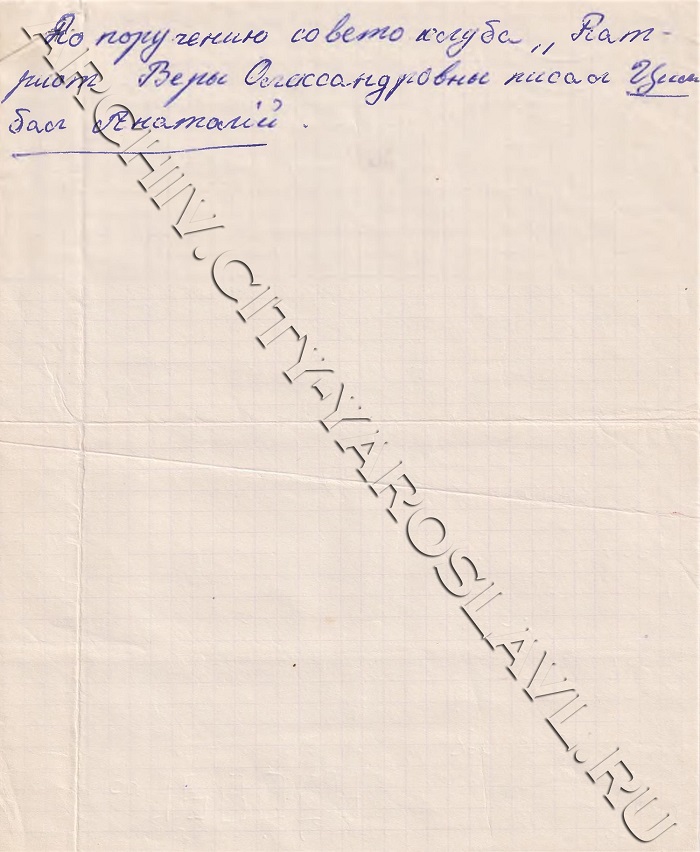 По поручению совета клуба „Пат-
риот Веры Олександровны писал Цим
бал Анатолій.
ARCHIV.CITY-YAROSLAVL.RU